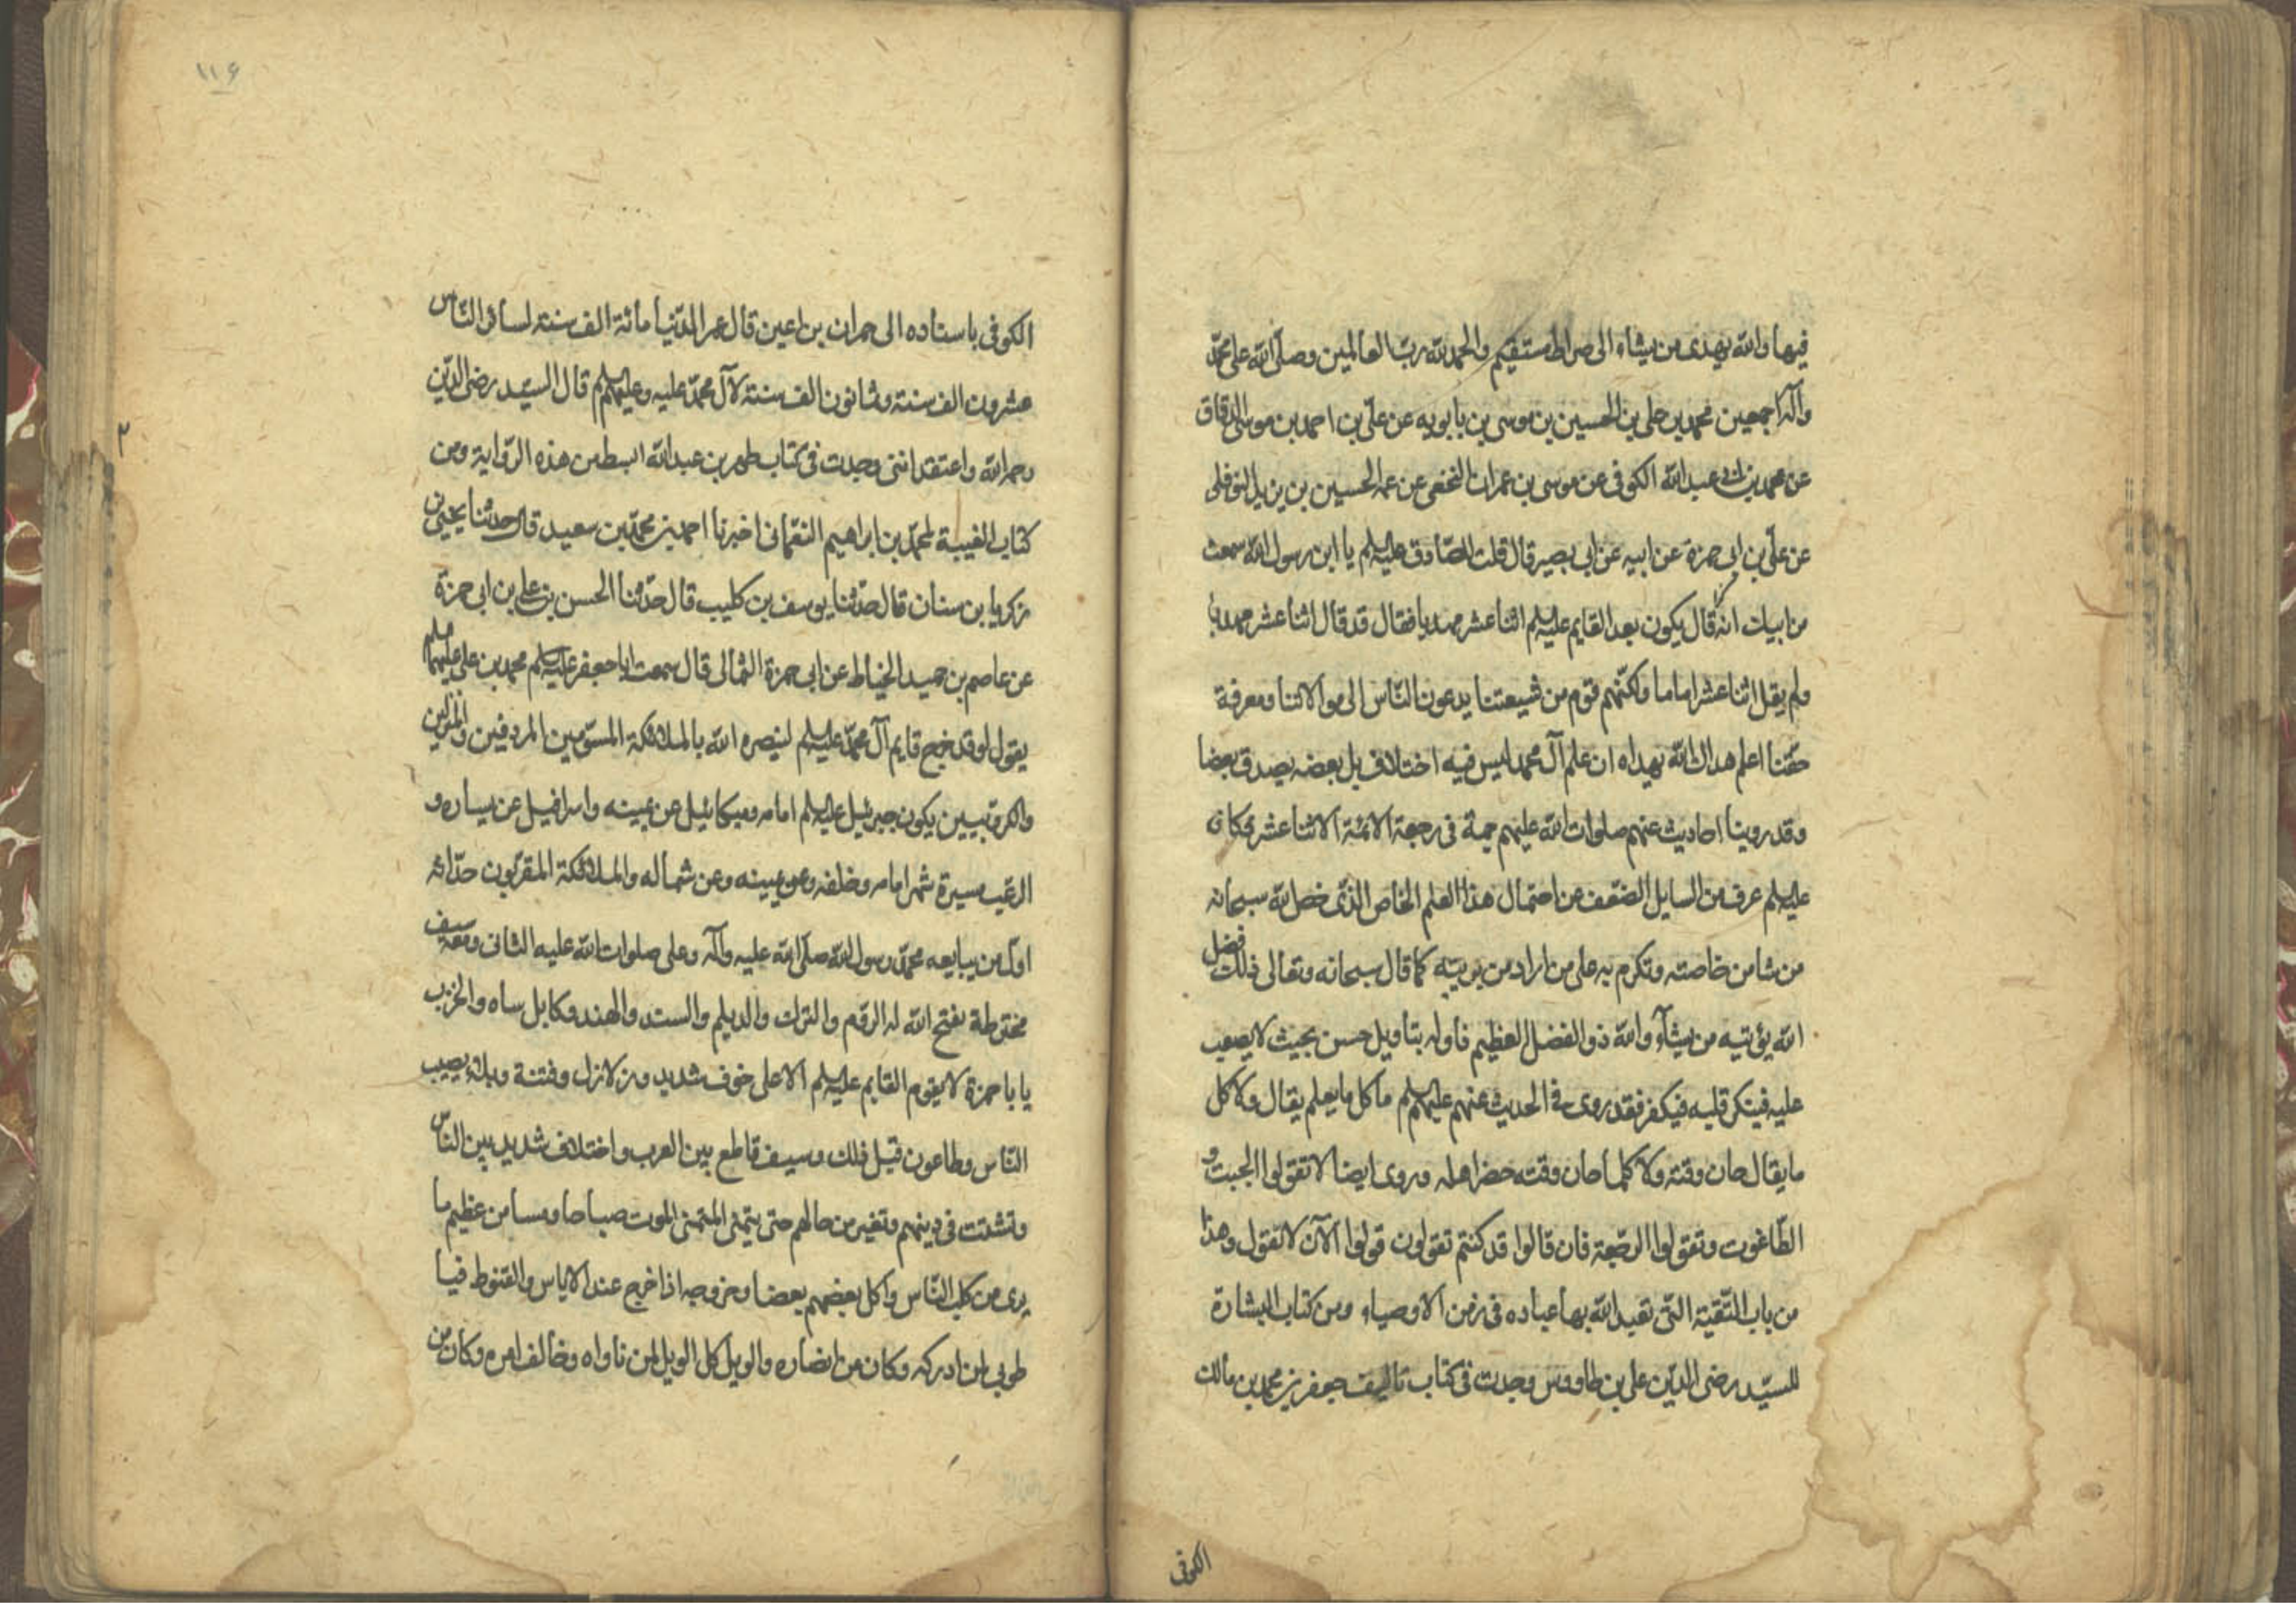 فيها والله يهدى من يشاء الى صراط مستقيم والحمد لله رب العالمين وصلى الله على محمد
وآله اجمعين محمد بن على بن الحسين بن موسى بن بابويه عن على بن احمد بن موسى الدقاق
عن محمد بن ابى عبد الله الكوفى عن موسى بن عمران النخعى عن عمه الحسين بن يزيد النوفلى
عن على بن ابى حمزة عن ابيه عن ابى بصير قال قلت للصادق عليه السلم يا ابن رسول الله سمعت
من ابيك انه قال يكون بعد القايم عليه السلم اثنا عشر مهديا فقال قد قال اثنا عشر مهديا
ولم يقل اثنا عشر اماما ولكنهم قوم من شيعتنا يدعون الناس الى موالاتنا ومعرفة
حقنا اعلم هداك الله بهداه ان علم آل محمد ليس فيه اختلاف بل بعضه يصدق بعضا
وقد روينا احاديث عنهم صلوات الله عليهم جمة فى رجعة الائمة الاثنا عشر فكانه
عليه السلم عرف من السايل الضعف عن احتمال هذا العلم الخاص الذى خص الله سبحانه
من شا من خاصته وتكرم به على من اراد من بريته كما قال سبحانه وتعالى ذلك فضل
الله يؤتيه من يشآء والله ذو الفضل العظيم فأوله بتأويل حسن بحيث لا يصعب
عليه فينكر قلبه فيكفر فقد روى فى الحديث عنهم عليهم السلم ما كل ما يعلم يقال ولا كل
ما يقال حان وقته ولا كلما حان وقته حضر اهله وروى ايضا لا تقولوا الجبت و
الطاغوت وتقولوا الرجعة فان قالوا قد كنتم تقولون قولوا الآن لا نقول وهذا
من باب التقية التى تعبد الله بها عباده فى زمن الاوصياء ومن كتاب البشارة
للسيد رضى الدين على بن طاووس وجدت فى كتاب تأليف جعفر بن محمد بن مالك
الكوفى
١١۶
الكوفى باسناده الى حمران بن اعين قال عمر الدنيا مائة الف سنة لسائر الناس
عشرون الف سنة وثمانون الف سنة لآل محمد عليه وعليهم السلم قال السيد رضى الدين
رحمه الله واعتقد اننى وجدت فى كتاب طهر بن عبد الله ابسط من هذه الرواية ومن
كتاب الغيبة لمحمد بن ابراهيم النعمانى اخبرنا احمد بن محمد بن سعيد قال حدثنا يحيى بن
زكريا بن سنان قال حدثنا يوسف بن كليب قال حدثنا الحسن بن على بن ابى حمزة
عن عاصم بن حميد الخياط عن ابى حمزة الثمالى قال سمعت ابا جعفر عليه السلم محمد بن على عليهما السلم
يقول لو قد خرج قايم آل محمد عليه السلم لينصره الله بالملائكة المسومين المردفين والمنزلين
والكروبيين يكون جبرئيل عليه السلم امامه وميكائيل عن يمينه واسرافيل عن يساره و
الرعب مسيرة شهر امامه وخلفه وعن يمينه وعن شماله والملائكة المقربون حذائه
اول من يبايعه محمد رسول الله صلى الله عليه وآله وعلى صلوات الله عليه الثانى ومعه سيف
مخترطة يفتح الله له الروم والترك والديلم والسند والهند وكابل ساه والخزر
يا با حمزة لا يقوم القايم عليه السلم الا على خوف شديد وزلازل وفتنة وبلاء يصيب
الناس وطاعون قبل ذلك وسيف قاطع بين العرب واختلاف شديد بين الناس
وتشتت فى دينهم وتغير من حالهم حتى يتمنى المتمنى الموت صباحا ومسا من عظيم ما
يرى من كلب الناس واكل بعضهم بعضا وخروجه اذا خرج عند الاياس والقنوط فيا
طوبى لمن ادركه وكان من انصاره والويل كل الويل لمن ناواه وخالف امره وكان من